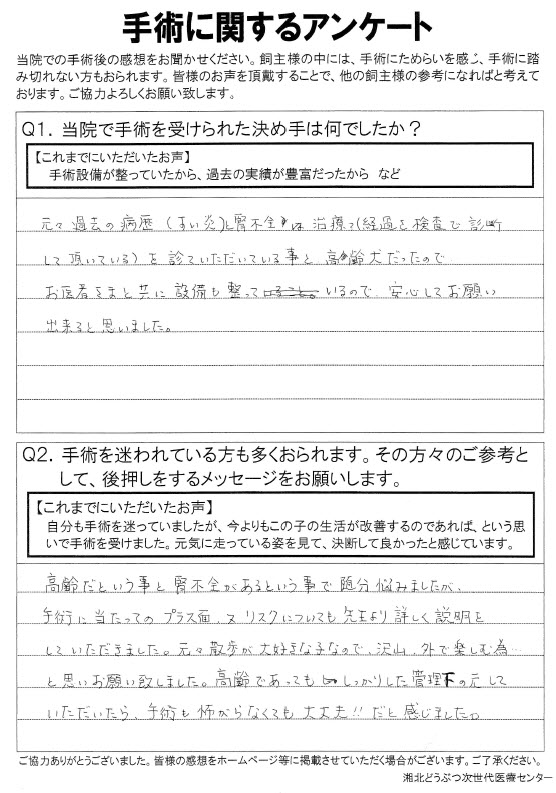 手術に関するアンケート
当院での手術後の感想をお聞かせください。飼主様の中には、手術にためらいを感じ、手術に踏
み切れない方もおられます。皆様のお声を頂戴することで、他の飼主様の参考になればと考えて
おります。ご協力よろしくお願い致します。
Q1. 当院で手術を受けられた決め手は何でしたか？
【これまでにいただいたお声】
手術設備が整っていたから、過去の実績が豊富だったから など
元々過去の病歴(すい炎)と腎不全は治療で(経過を検査で診断
して頂いている)を診ていただいている事と高齢犬だったので
お医者さまと共に設備も整っているので安心してお願い
出来ると思いました。
Q2. 手術を迷われている方も多くおられます。その方々のご参考と
して、後押しをするメッセージをお願いします。
【これまでにいただいたお声】
自分も手術を迷っていましたが、今よりもこの子の生活が改善するのであれば、という思
いで手術を受けました。元気に走っている姿を見て、決断して良かったと感じています。
高齢だという事と腎不全があるという事で随分悩みましたが、
手術に当たってのプラス面、又リスクについても先生より詳しく説明を
していただきました。元々散歩が大好きな子なので、沢山、外で楽しむ為…
と思いお願い致しました。高齢であってもしっかりした管理下の元して
いただいたら、手術も怖がらなくても大丈夫!!だと感じました。
ご協力ありがとうございました。皆様の感想をホームページ等に掲載させていただく場合がございます。ご了承ください。
湘北どうぶつ次世代医療センター